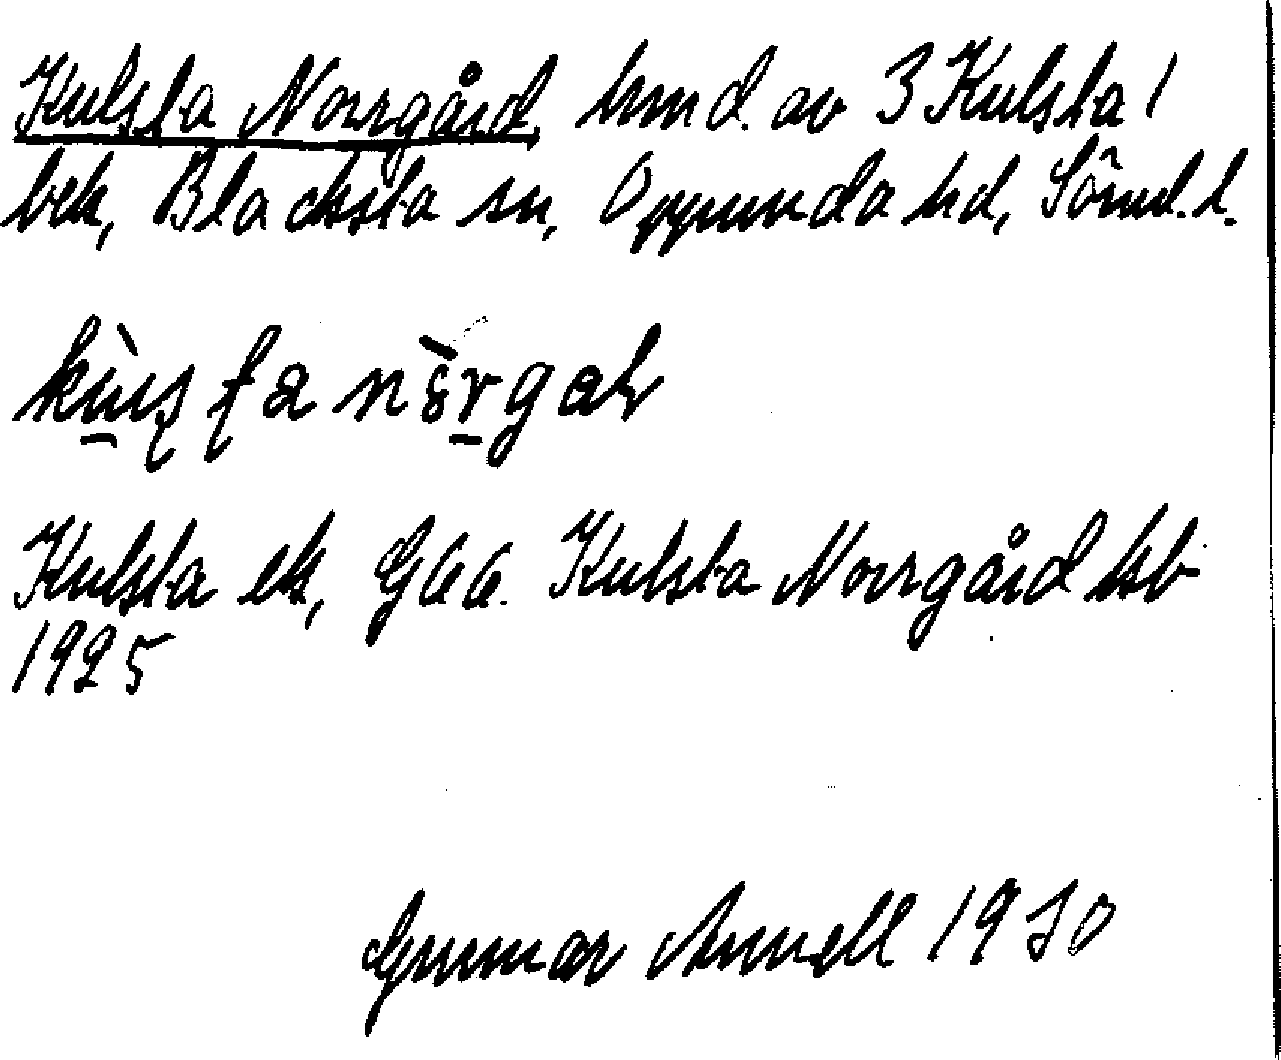 Kulsta Norrgård, hmd. av 3 Kulsta 1
bek, Blacksta sn, Oppunda hd, Sörml. l.
Kulsta ek, G66. Kulsta Norrgård kb
1925
Gunnar Annell 1930